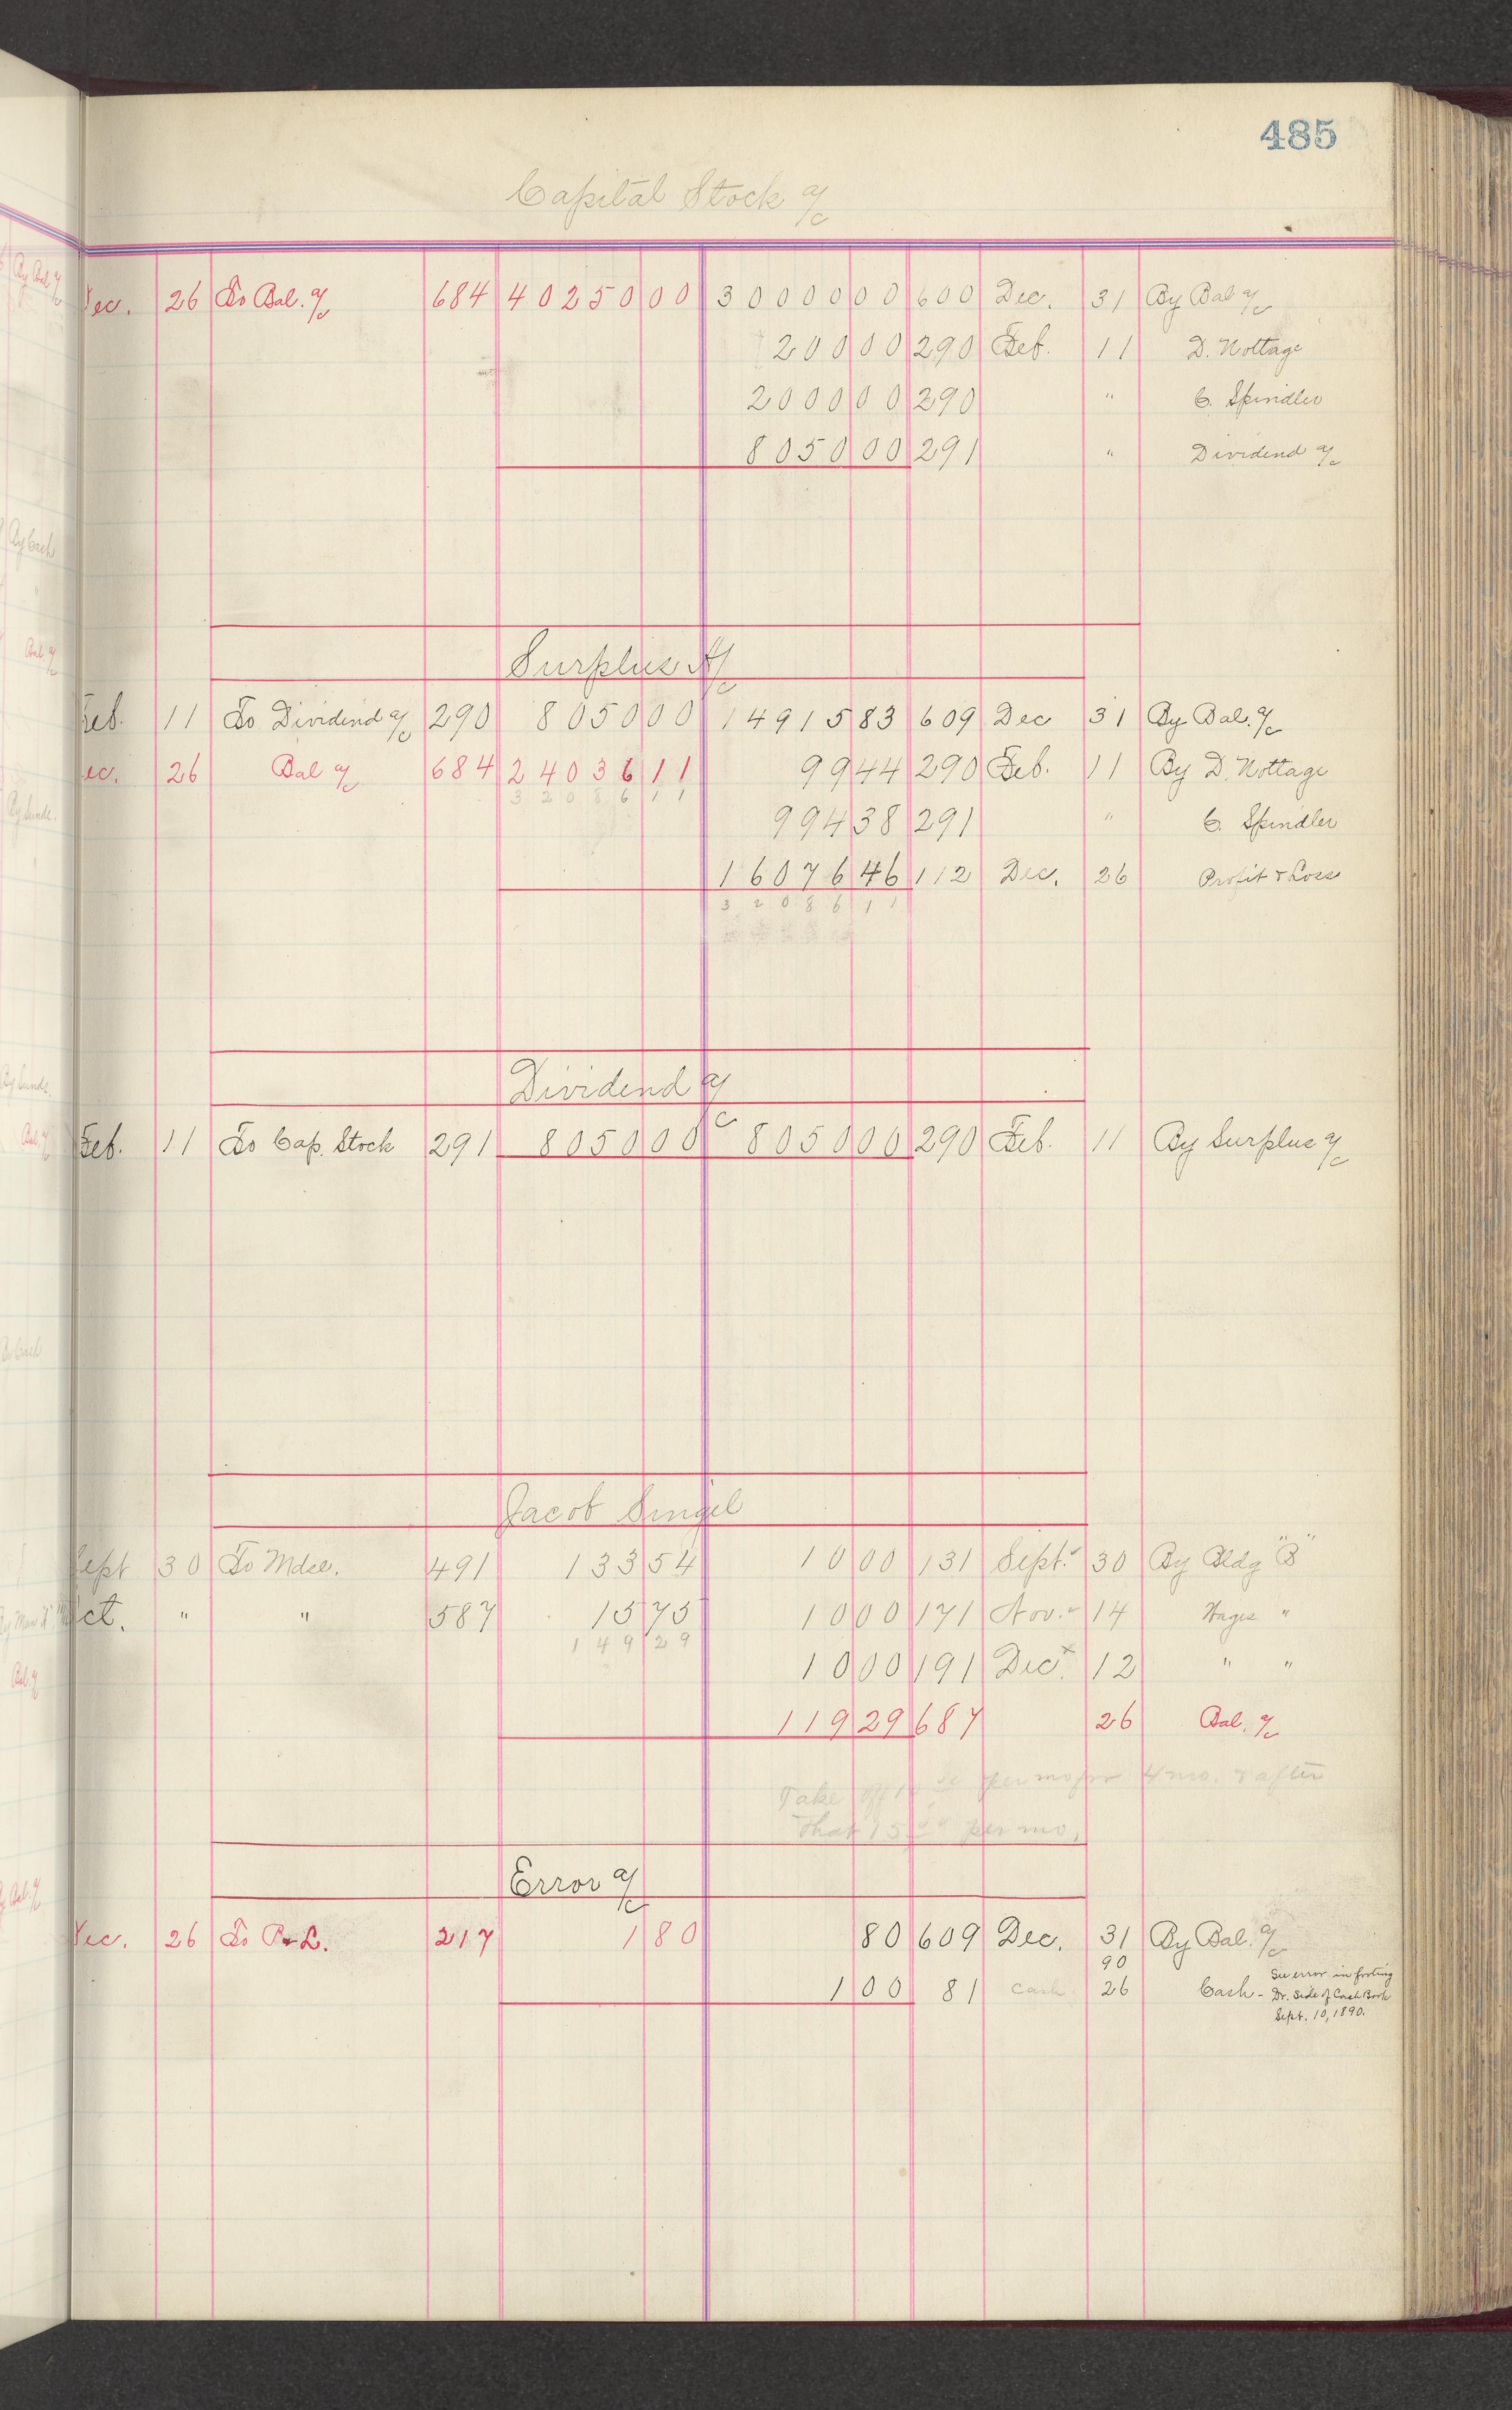 485
Capital Stock a/c
Dec. 26 To Bal. a/c 684 40250 00 30000 00 600 Dec. 31 By Bal a/c
200 00 290 Feb. 11 D. Nottage
2000 00 290 " C. Spindler
8050 00 291 " Dividend a/c
Surplus A/c
Feb. 11 To Dividend a/c 290 8050 00 14915 83 609 Dec 31 By Bal. a/c
Dec. 26 Bal a/c 684 24036 11 99 44 290 Feb. 11 By D. Nottage
32086 11
994 38 291 " C. Spindler
16076 46 112 Dec. 26 Profit & Loss
32086 11
Dividend a/c
Feb. 11 To Cap. Stock 291 8050 00 8050 00 290 Feb. 11 By Surplus a/c
Jacob Singel
Sept 30 To Mdse. 491 133 54 10 00 131 Sept. 30 By Bldg "B"
Oct. " " 587 15 75 10 00 171 Nov. 14 Wages "
149 29
10 00 191 Dec. 12 " "
119 29 687 26 Bal. a/c
Take off per mo for 4 mo. & after
that 15 00 per mo.
Error a/c
Dec. 26 To P & L. 217 1 80 80 609 Dec. 31 By Bal. a/c
90
1 00 81 Cash 26 Cash - See error in footing
Dr. Side of Cash Book
Sept. 10, 1890.